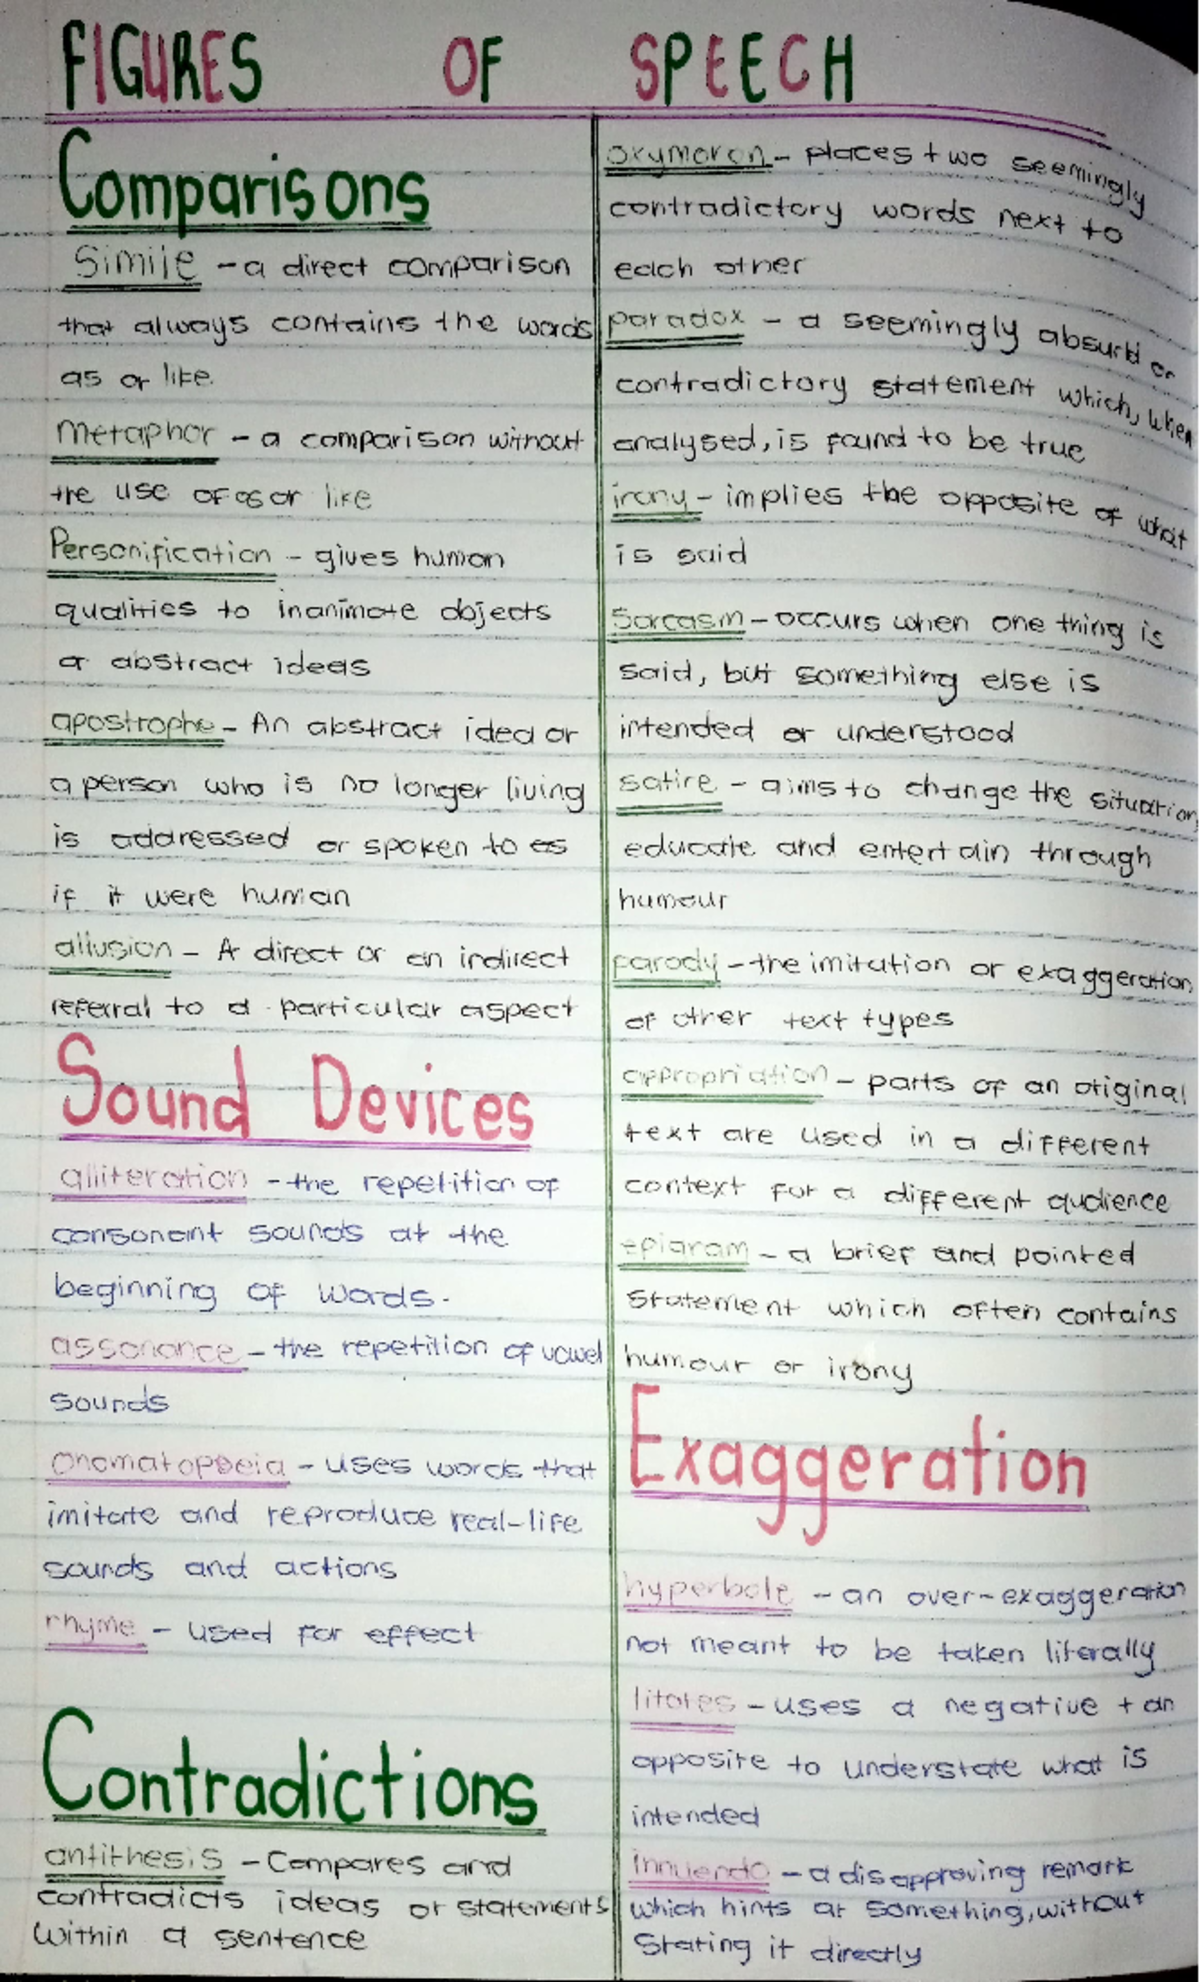 FIGURES OF SPEECH
Comparisons
Simile - a direct comparison
that always contains the words
as or like.
metaphor - a comparison without
the use of as or like
Personification - gives human
qualities to inanimate objects
or abstract ideas
apostrophe - An abstract idea or
a person who is no longer living
is addressed or spoken to as
if it were human
allusion - A direct or an indirect
referral to a particular aspect
Sound Devices
alliteration - the repetition of
consonant sounds at the
beginning of words.
assonance - the repetition of vowel
sounds
onomatopoeia - uses words that
imitate and reproduce real-life
sounds and actions
rhyme - used for effect
Contradictions
antithesis - Compares and
contradicts ideas or statements
within a sentence
oxymoron - places two seemingly
contradictory words next to
each other
paradox - a seemingly absurd or
contradictory statement which, when
analysed, is found to be true
irony - implies the opposite of what
is said
Sarcasm - occurs when one thing is
said, but something else is
intended or understood
satire - aims to change the situation,
educate and entertain through
humour
parody - the imitation or exaggeration
of other text types
appropriation - parts of an original
text are used in a different
context for a different audience
epigram - a brief and pointed
statement which often contains
humour or irony
Exaggeration
hyperbole - an over-exaggeration
not meant to be taken literally
litotes - uses a negative + an
opposite to understate what is
intended
innuendo - a disapproving remark
which hints at something, without
stating it directly